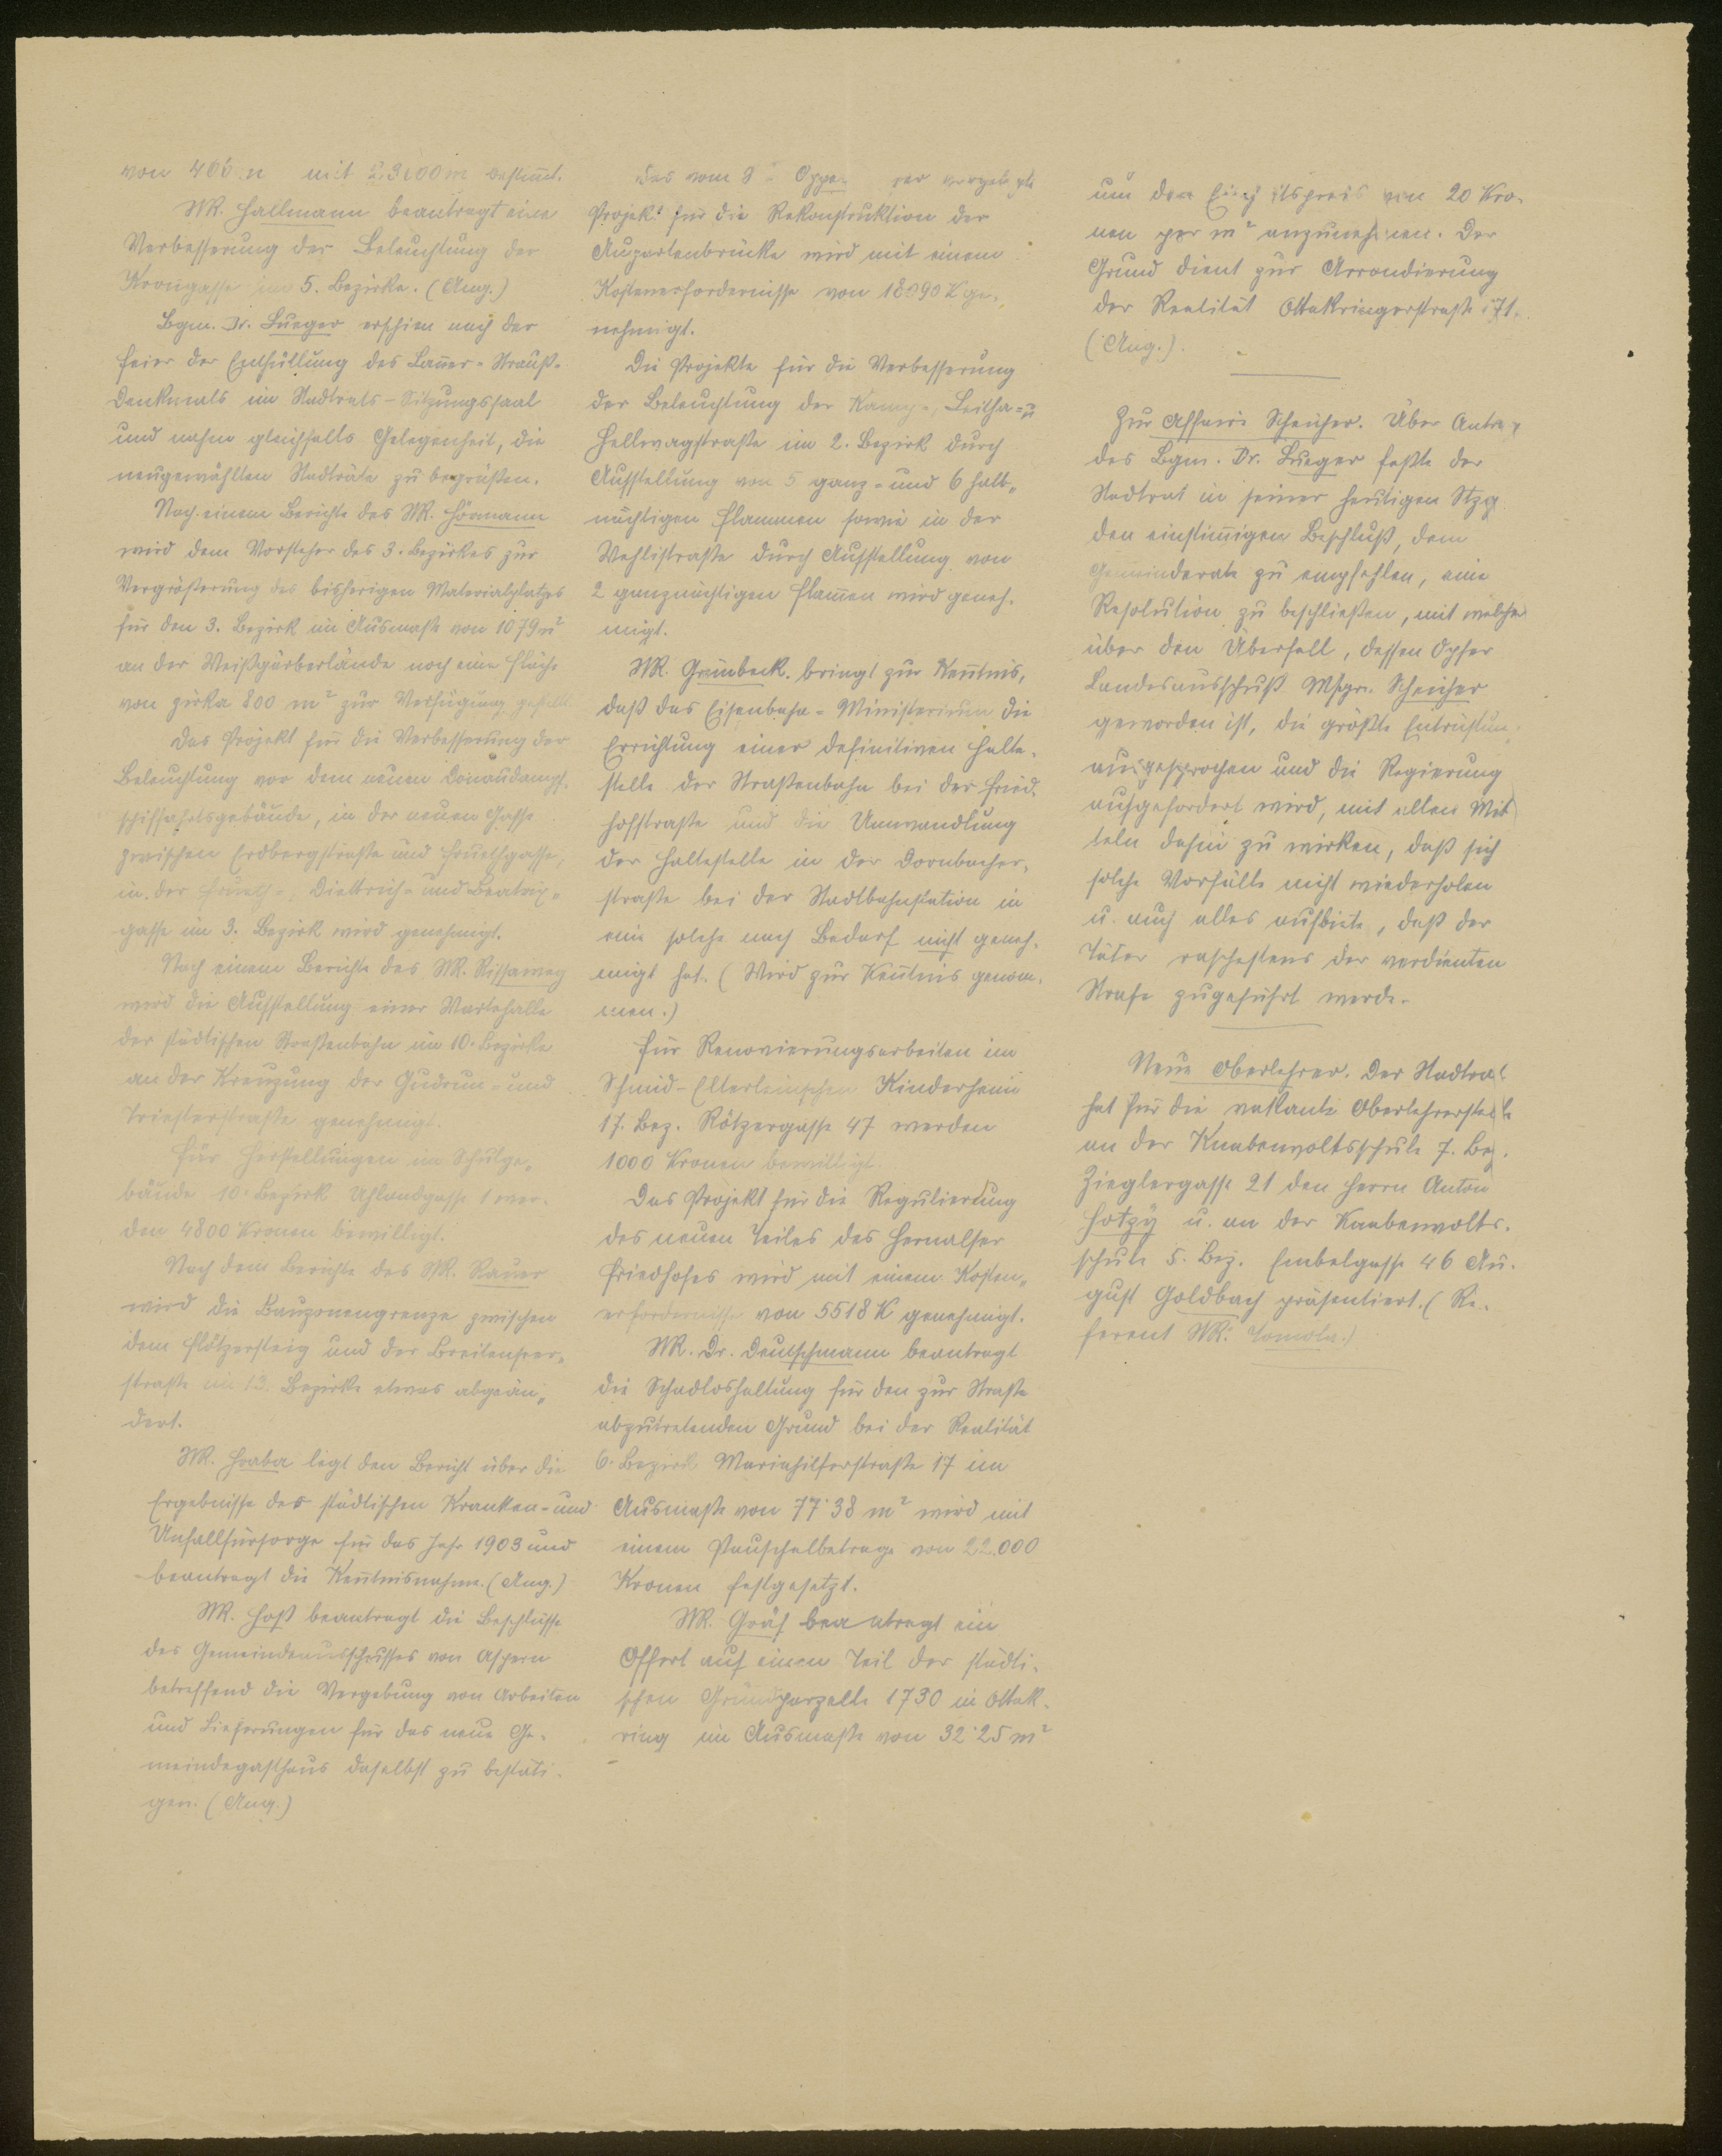 von 406 mit bestimt.
StR. Hallmann beantragt eine
Verbesserung der Beleuchtung der
Krongasse im 5. Bezirke. (Ang.)
Bgm. Dr. Lueger erschien nach der
Feier der Enthüllung des Lanner-Strauß-
Denkmals im Stadtrats-Sitzungssaal
und nahm gleichfalls Gelegenheit, die
neugewählten Stadträte zu begrüßen.
Nach einem Berichte des StR. Hörmann
wird dem Vorsteher des 3. Bezirkes zur
Vergrößerung des bisherigen Materialplatzes
für den 3. Bezirk im Ausmaße von 1079 m²
an der Weißgärberlände noch eine Fläche
von zirka 800 m² zur Verfügung gestellt.
Das Projekt für die Verbesserung der
Beleuchtung vor dem neuen Donaudampf-
schiffahrtsgebäude, in der neuen Gasse
zwischen Erdbergstraße und Hruelgasse,
in der Dietrich- und Beatrix-
gasse im 3. Bezirk wird genehmigt.
Nach einem Berichte des StR. Rissaweg
wird die Aufstellung einer Wartehalle
der städtischen Straßenbahn im 10. Bezirke
an der Kreuzung der Gudrun- und
Triesterstraße genehmigt.
Für Herstellungen im Schulge-
bäude 10. Bezirk Uhlandgasse 1 wer-
den 4800 Kronen bewilligt.
Nach dem Berichte des StR. Rauer
wird die Bauzonengrenze zwischen
dem Flötzersteig und der Breitenseer-
straße im 13. Bezirke etwas abgeän-
dert.
StR. Hraba legt den Bericht über die
Ergebnisse der städtischen Kranken- und
Unfallfürsorge für das Jahr 1903 und
beantragt die Kenntnisnahme. (Ang.)
StR. Hoß beantragt die Beschlüsse
des Gemeindeausschusses von Aspern
betreffend die Vergebung von Arbeiten
und Lieferungen für das neue Ge-
meindegasthaus daselbst zu bestäti-
gen. (Ang.)
Das vom vorgelegte
Projekt für die Rekonstruktion der
Augartenbrücke wird mit einem
Kostenerfordernisse von 18090 K ge-
nehmigt.
Die Projekte für die Verbesserung
der Beleuchtung der Kamp-, Leitha- u
Hellwagstraße im 2. Bezirk durch
Aufstellung von 5 ganz- und 6 halb-
nächtigen Flammen sowie in der
Wehlistraße durch Aufstellung von
2 ganznächtigen Flamen wird geneh-
migt.
StR. Grünbeck bringt zur Kentnis,
daß das Eisenbahn-Ministerium die
Errichtung einer definitiven Halte-
stelle der Straßenbahn bei der Fried-
hofstraße und die Umwandlung
der Haltestelle in der Dornbacher-
straße bei der Stadtbahnstation in
eine solche nach Bedarf nicht geneh-
migt hat. (Wird zur Kentnis genom-
men.)
Für Renovierungsarbeiten im
Schmid-Elterleinschen Kinderheim
17. Bez. Rötzergasse 47 werden
1000 Kronen bewilligt.
Das Projekt für die Regulierung
des neuen Teiles des Hernalser
Friedhofes wird mit einem Kosten-
erfordernisse von 5518 K genehmigt.
StR. Dr. Deutschmann beantragt
die Schadloshaltung für den zur Straße
abzutretenden Grund bei der Realität
6. Bezirk Mariahilferstraße 17 im
Ausmaße von 77·38 m² wird mit
einem Pauschalbetrage von 22.000
Kronen festgesetzt.
StR. Gräf beantragt ein
Offert auf einen Teil der städti-
schen Grundparzelle 1730 in Ottak-
ring im Ausmaße von 32·25 m²
um den Einheitspreis von 20 Kro-
nen per m² anzunehmen. Der
Grund dient zur Arrondierung
der Realität Ottakringerstraße 171.
(Ang.).
Zur Affaire Scheicher. Über Antrag
des Bgm. Dr. Lueger faßte der
Stadtrat in seiner heutigen Stzg
den einstimigen Beschluß, dem
Gemeinderate zu empfehlen, eine
Resolution zu beschließen, mit welcher
über den Überfall, dessen Opfer
Landesausschuß Msgr. Scheicher
geworden ist, die größte Entrüstung
ausgesprochen und die Regierung
aufgefordert wird, mit allen Mit
teln dahin zu wirken, daß sich
solche Vorfälle nicht wiederholen
u. auch alles aufbiete, daß der
Täter raschestens der verdienten
Strafe zugeführt werde.
Neue Oberlehrer. Der Stadtrat
hat für die vakante Oberlehrerstelle
an der Knabenvolksschule 7. Bez.
Zieglergasse 21 den Herrn Anton
Hotzy u. an der Knabenvolks-
schule 5. Bez. Embelgasse 46 Au-
gust Goldbach präsentiert. (Re-
ferent StR. Tomola.)